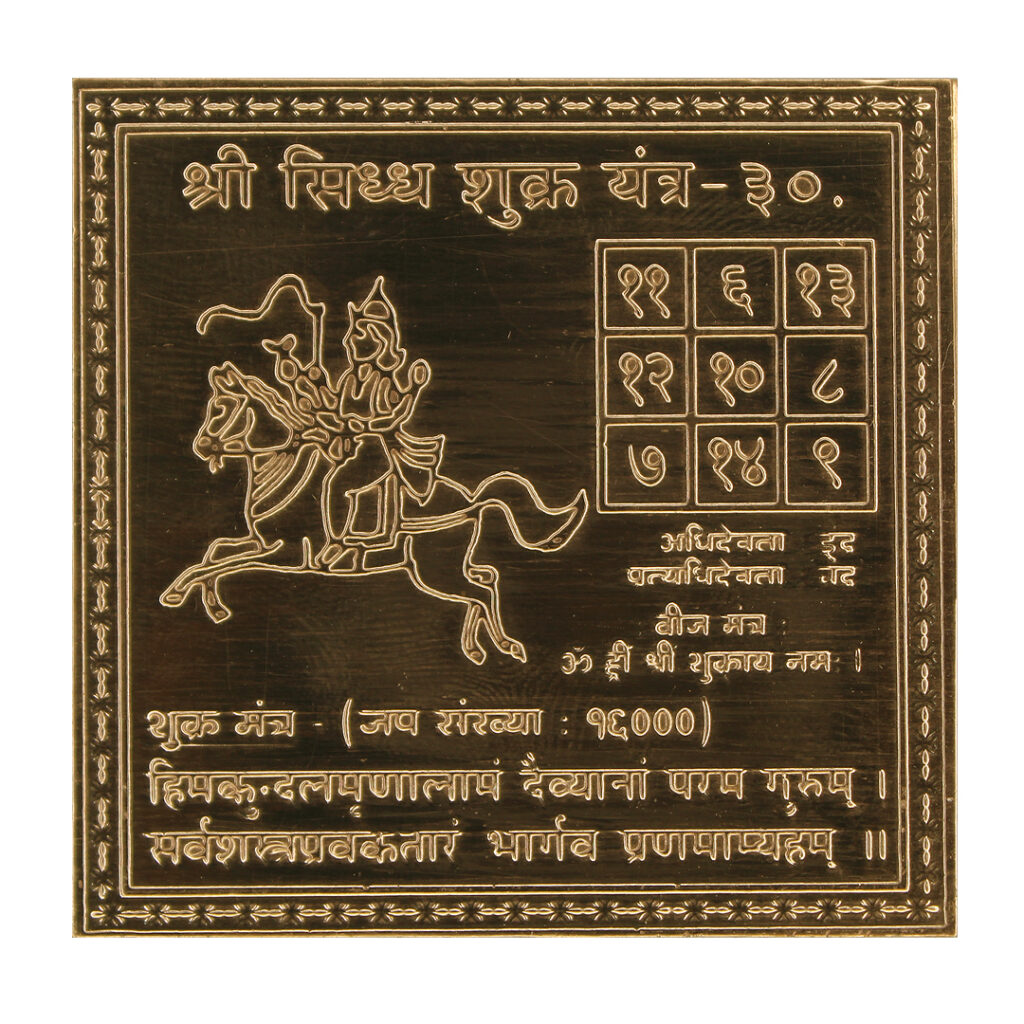 श्री सिध्ध शुक्र यंत्र - ३०.
११ ६ १३
१२ १० ८
७ १४ ९
अधिदेवता इद
पत्यधिदेवता
वीज मंत्र
ॐ ह्रीं श्रीं शुक्राय नमः ।
शुक्र मंत्र - (जप संख्या : १६०००)
हिमकुन्दलमृणालामं दैव्यानां परम गुरुम् ।
सर्वशस्त्रप्रवकतारं भार्गव प्रणमाम्यहम् ॥